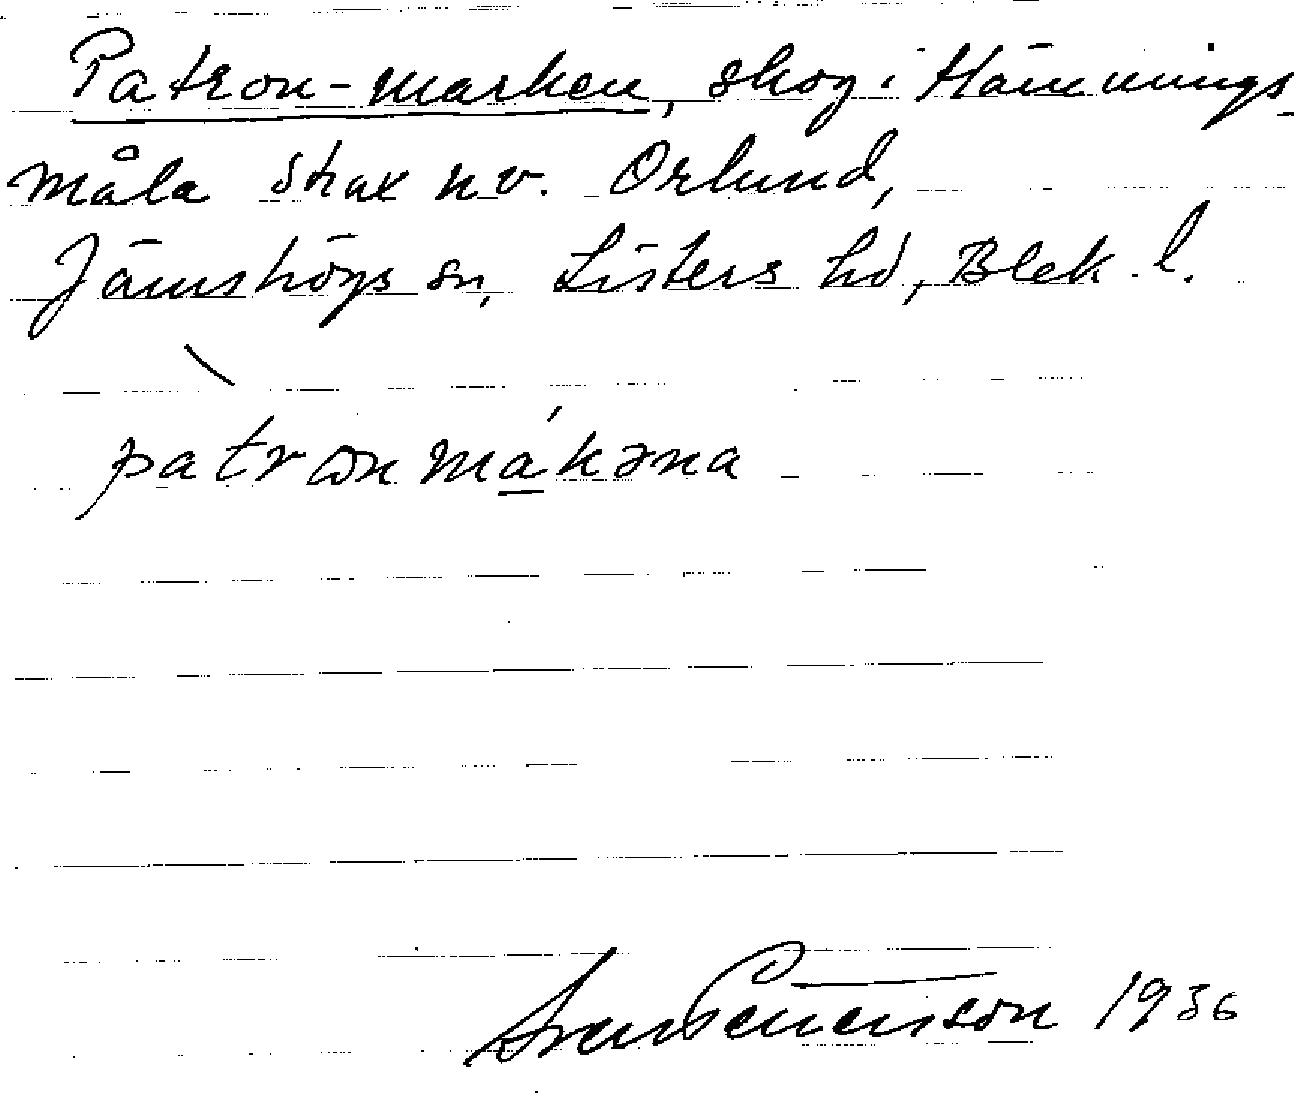 Patron-marken, skog i Hämmings-
måla strax nv. Orlund,
Jämshögs sn, Listers hd, Blek. l.
patronmákəna
Sven Benson 1936